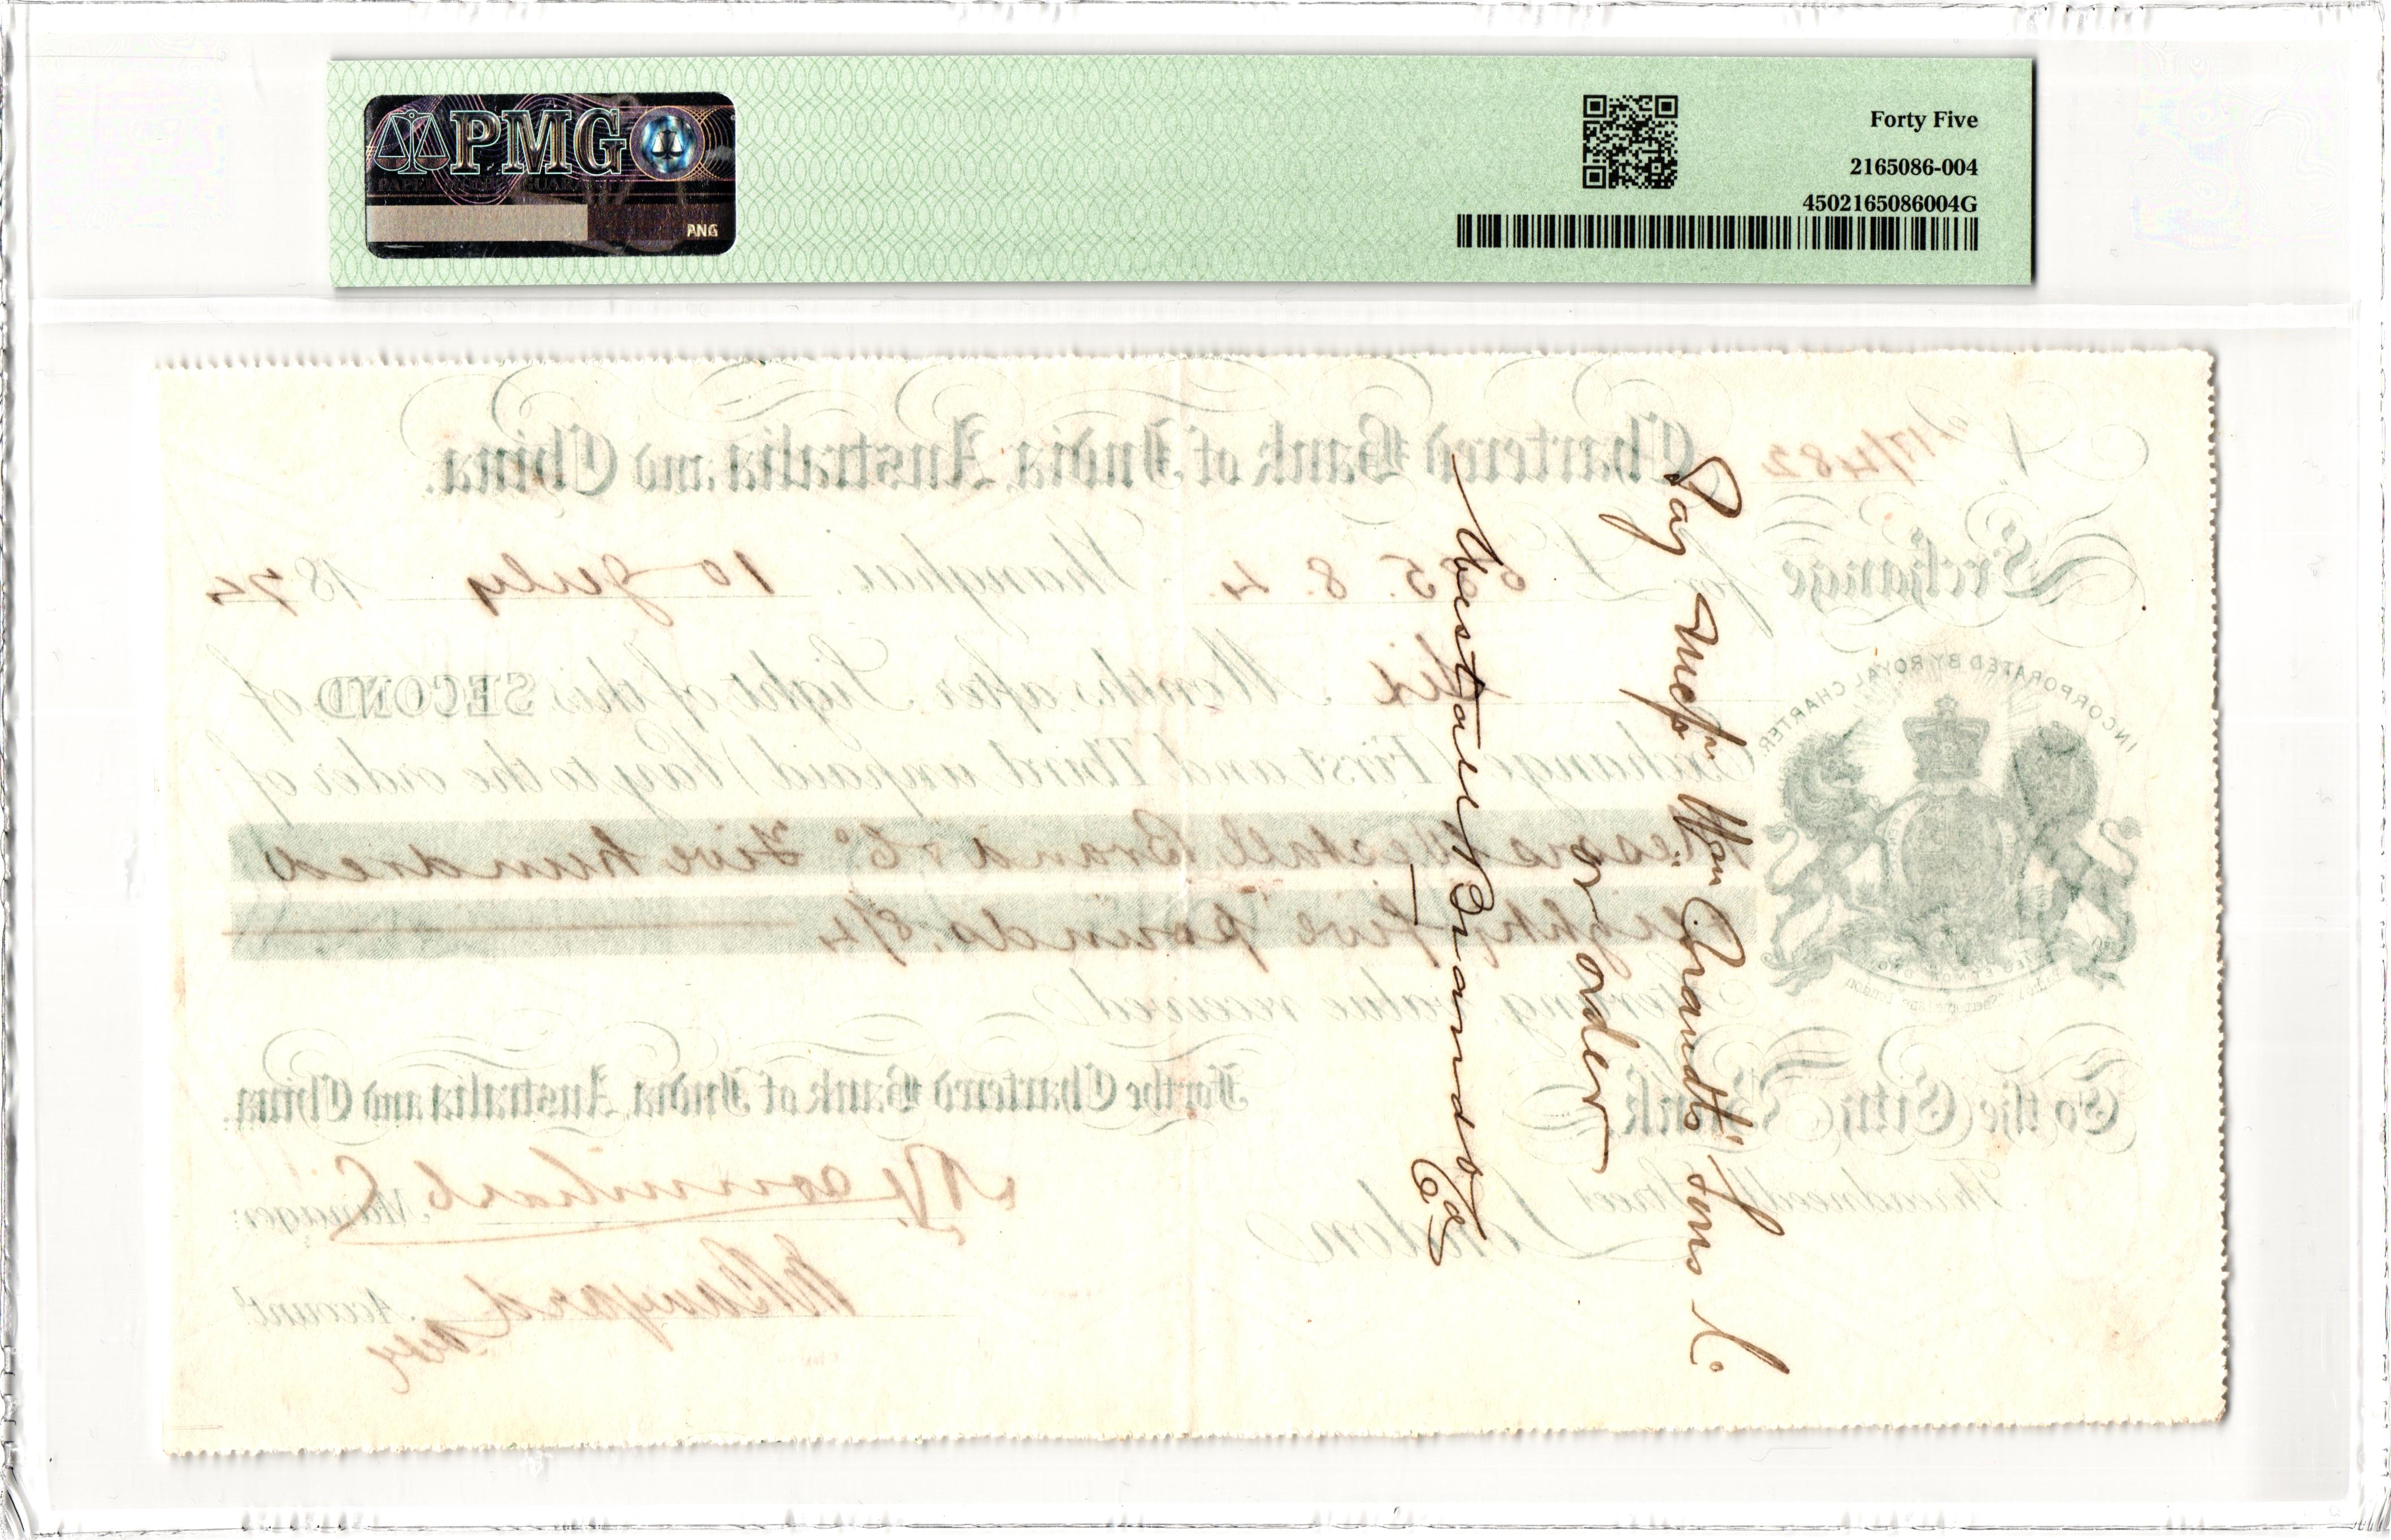 PMG
PAPER MONEY GUARANTY
PNG
Forty Five
2165086-004
4502165086004G
A 17/482
Chartered Bank of India, Australia and China.
Exchange for £ 585. 8. 4. Shanghai. 10 July 1874
Six Months after Sight of this SECOND of
Exchange (First and Third unpaid) Pay to the order of
Messrs Westall Brand & Co Five hundred
eighty five pounds. 8/4
Sterling, value received
INCORPORATED BY ROYAL CHARTER
To the City Bank,
Threadneedle Street
London.
For the Chartered Bank of India, Australia and China.
Manager.
Account
Pay Messrs Wm Brandt's Sons &
or order
Westall Brand & Co